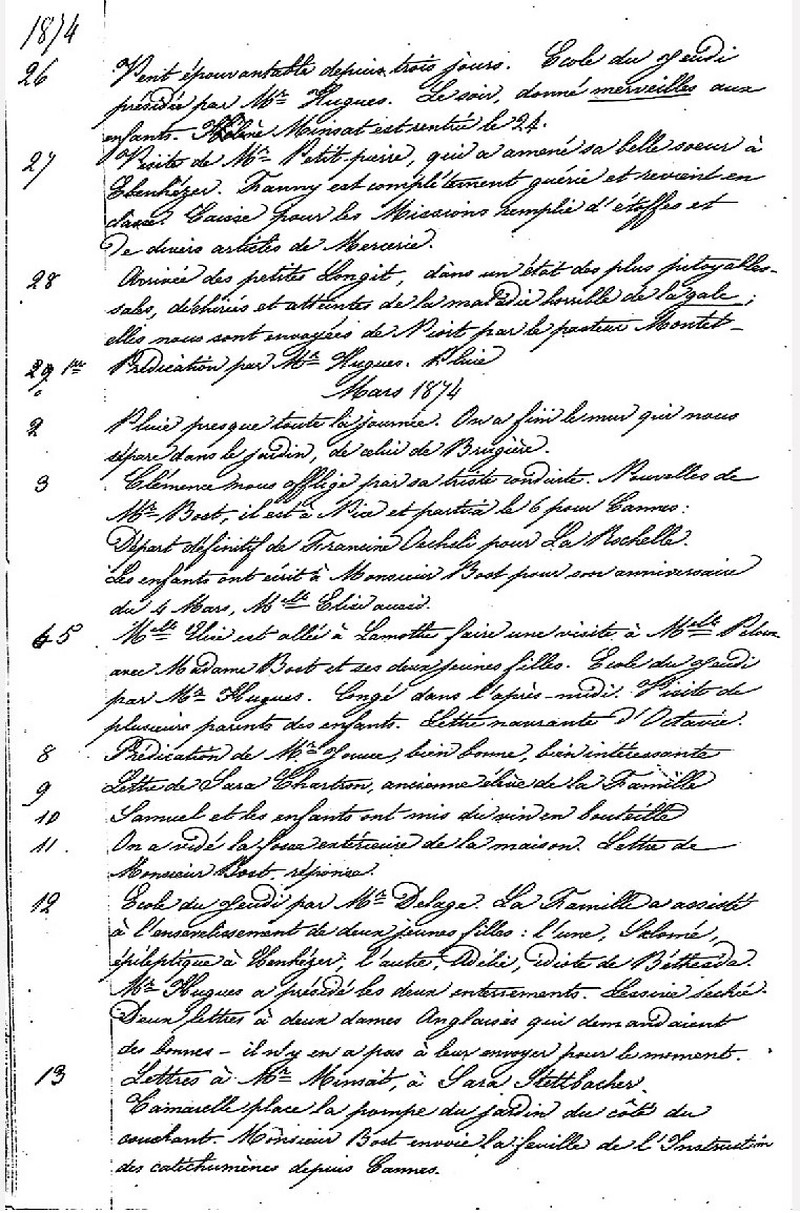 1874
26 Vent épouvantable depuis trois jours. Ecole du Jeudi
présidée par Mr Hugues. Le soir, donné merveilles aux
enfants. Hélène Minsat est rentrée le 24.
27 Visite de Mr Petit-pierre, qui a amené sa belle soeur à
Ebenhézer. Fanny est complètement guérie et revient en
classe. Caisse pour les Missions remplie d'étoffes et
de divers articles de Mercerie.
28 Arrivée des petites Longit, dans un état des plus pitoyables-
sales, déchirées et atteintes de la maladie horrible de la gale;
elles nous sont envoyées de Niort par le pasteur Montet-
29 1er Prédication par Mr Hugues. Pluie
Mars 1874
2 Pluie presque toute la journée. On a fini le mur qui nous
sépare dans le jardin, de celui de Brugière.
3 Clémence nous afflige par sa triste conduite. Nouvelles de
Mr Bost, il est à Nice et partira le 6 pour Cannes:
Départ définitif de Francine Oechsli pour La Rochelle.
Les enfants ont écrit à Monsieur Bost pour son anniversaire
du 4 Mars, Melle Elise aussi.
5 Melle Elise est allée à Lamothe faire une visite à Melle Peloux
avec Madame Bost et ses deux jeunes filles. Ecole du Jeudi
par Mr Hugues. Congé dans l'après-midi. Visite de
plusieurs parents des enfants. Lettre navrante d'Octavie.
8 Prédication de Mr Jouve, bien bonne, bien intéressante
9 Lettre de Sara Chartron, ancienne élève de la Famille
10 Samuel et les enfants ont mis du vin en bouteille
11. On a vidé la fosse extérieure de la maison. Lettre de
Monsieur Bost. réponse.
12 Ecole du Jeudi par Mr Delage. La Famille a assisté
à l'ensevelissement de deux jeunes filles: l'une, Salomé,
épileptique à Ebenhézer; l'autre, Adélie, idiote de Béthesda.
Mr Hugues a présidé les deux enterrements. Lessive sechée.
Deux lettres à deux dames Anglaises qui demandaient
des bonnes - il n'y en a pas à leur envoyer pour le moment.
13 Lettres à Mr Minsait, à Sara Stettbacher.
Camarelle place la pompe du jardin du côté du
couchant. Monsieur Bost envoie la feuille de l'Instruction
des catéchumènes depuis Cannes.